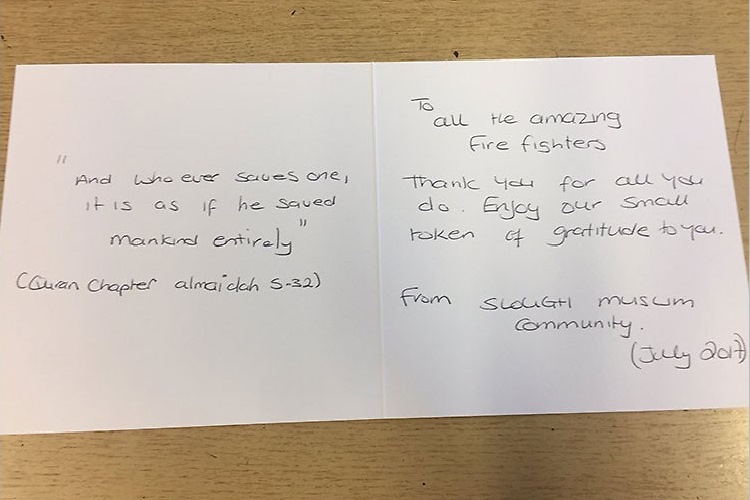 "And who ever saves one,
it is as if he saved
mankind entirely"
(Quran Chapter almaidah 5-32)
To
all the amazing
Fire fighters
Thank you for all you
do. Enjoy our small
token of gratitude to you.
From SLOUGH muslim
Community.
(July 2017)